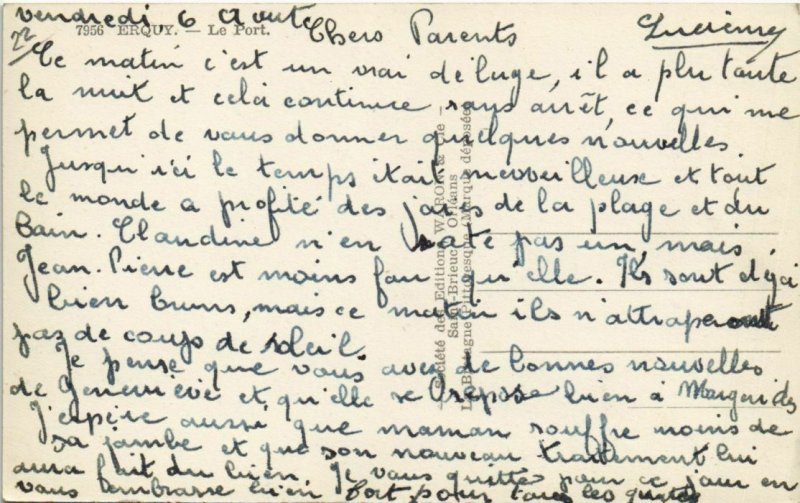 vendredi, 6 Aout
7956 ERQUY. — Le Port.
22
Chers Parents
Lucienne
Ce matin c'est un vrai déluge, il a plu toute
la nuit et cela continue sans arrêt, ce qui me
permet de vous donner quelques nouvelles
Jusqu'ici le temps était merveilleuse et tout
le monde a profité des joies de la plage et du
Bain. Claudine n'en rate pas un, mais
Jean. Pierre est moins fou qu'elle. Ils sont déjà
bien bruns, mais ce matin ils n'attraperont
pas de coups de soleil.
Je pense que vous avez de bonnes nouvelles
de Geneviève et qu'elle se repose bien à
J'espère aussi que maman souffre moins de
sa jambe et que son nouveau traitement lui
aura fait du bien. Je vous quitte pour ce jour en
vous embrasse bien fort pour tous les quatre
Société des Editions WARON & Cie —
Saint-Brieuc — Orléans
La Bretagne Pittoresque (Marque déposée)